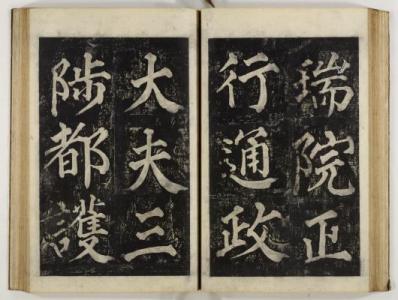 瑞院正
行通政
大夫三
陟都護